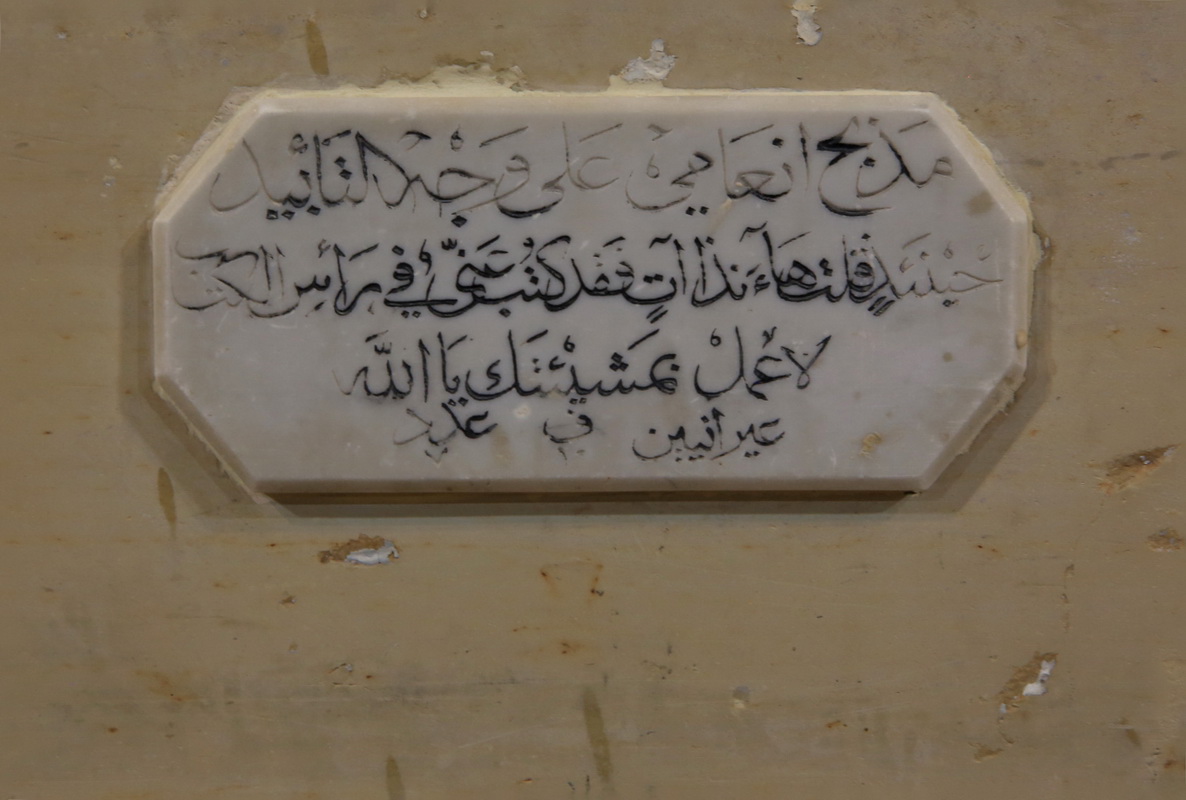 مَذبَح انعَامِيْ عَلى وَجْه التَأبيد
حيْنَئذٍ قلت هَاءَنذا آتٍ فقَد كتُبَ عَنيّ في رَأس الكتاب
لاعْملْ بمَشيْئتَك يَا اللَّه
عبرانيين في عدد